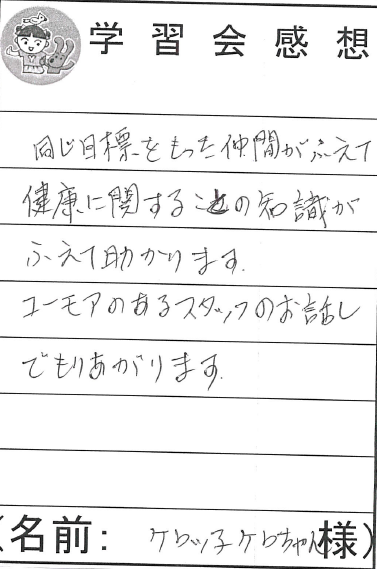 学習会感想
同じ目標をもった仲間がふえて
健康に関することの知識が
ふえて助かります。
ユーモアのあるスタッフのお話し
でもりあがります。
(名前: ケロッ子ケロちゃん様)